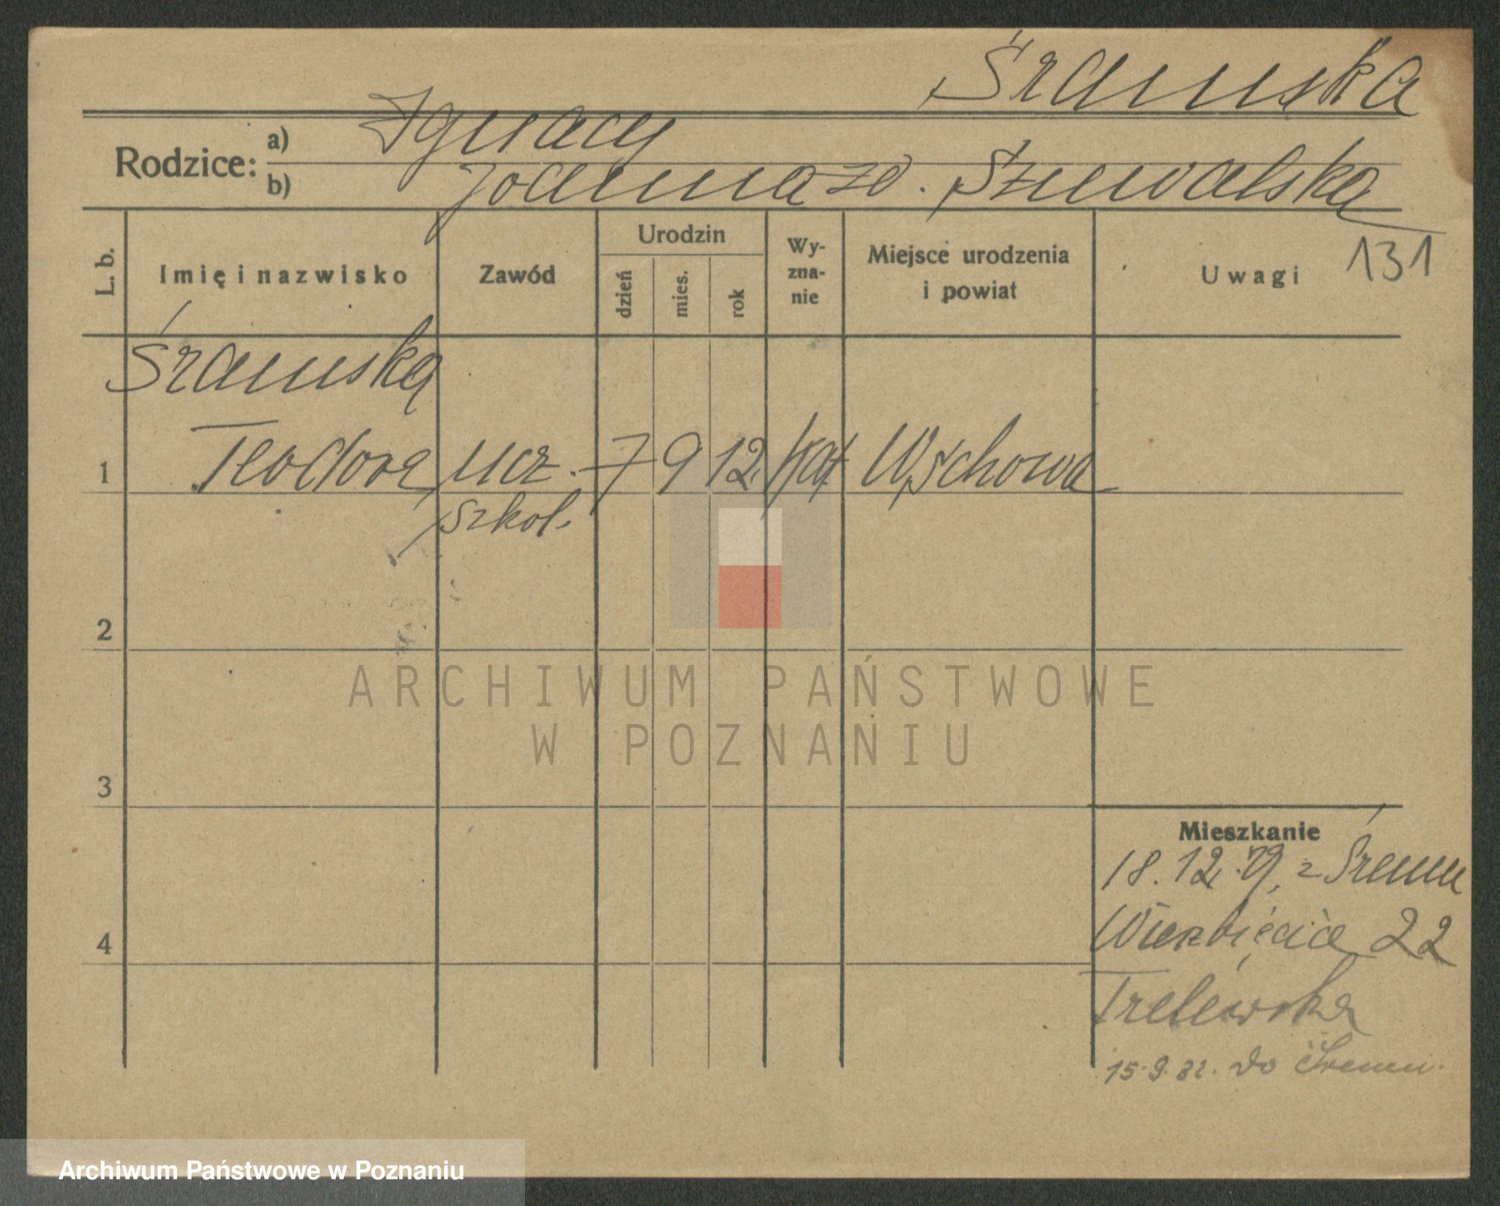 Śramska
Rodzice: a) Ignacy
b) Joanna zd. Szuwalska
131
L. b. Imię i nazwisko Zawód Urodzin dzień mies. rok Wy-zna-nie Miejsce urodzenia i powiat Uwagi
Śramska
1 Teodora ucz. 7 9 12 kat Wschowa
szkol.
2
ARCHIWUM PAŃSTWOWE
W POZNANIU
3
Mieszkanie
18.12.29. z Śremu
4 Wierzbięcice 22
15.9.32. do Śremu.
Archiwum Państwowe w Poznaniu